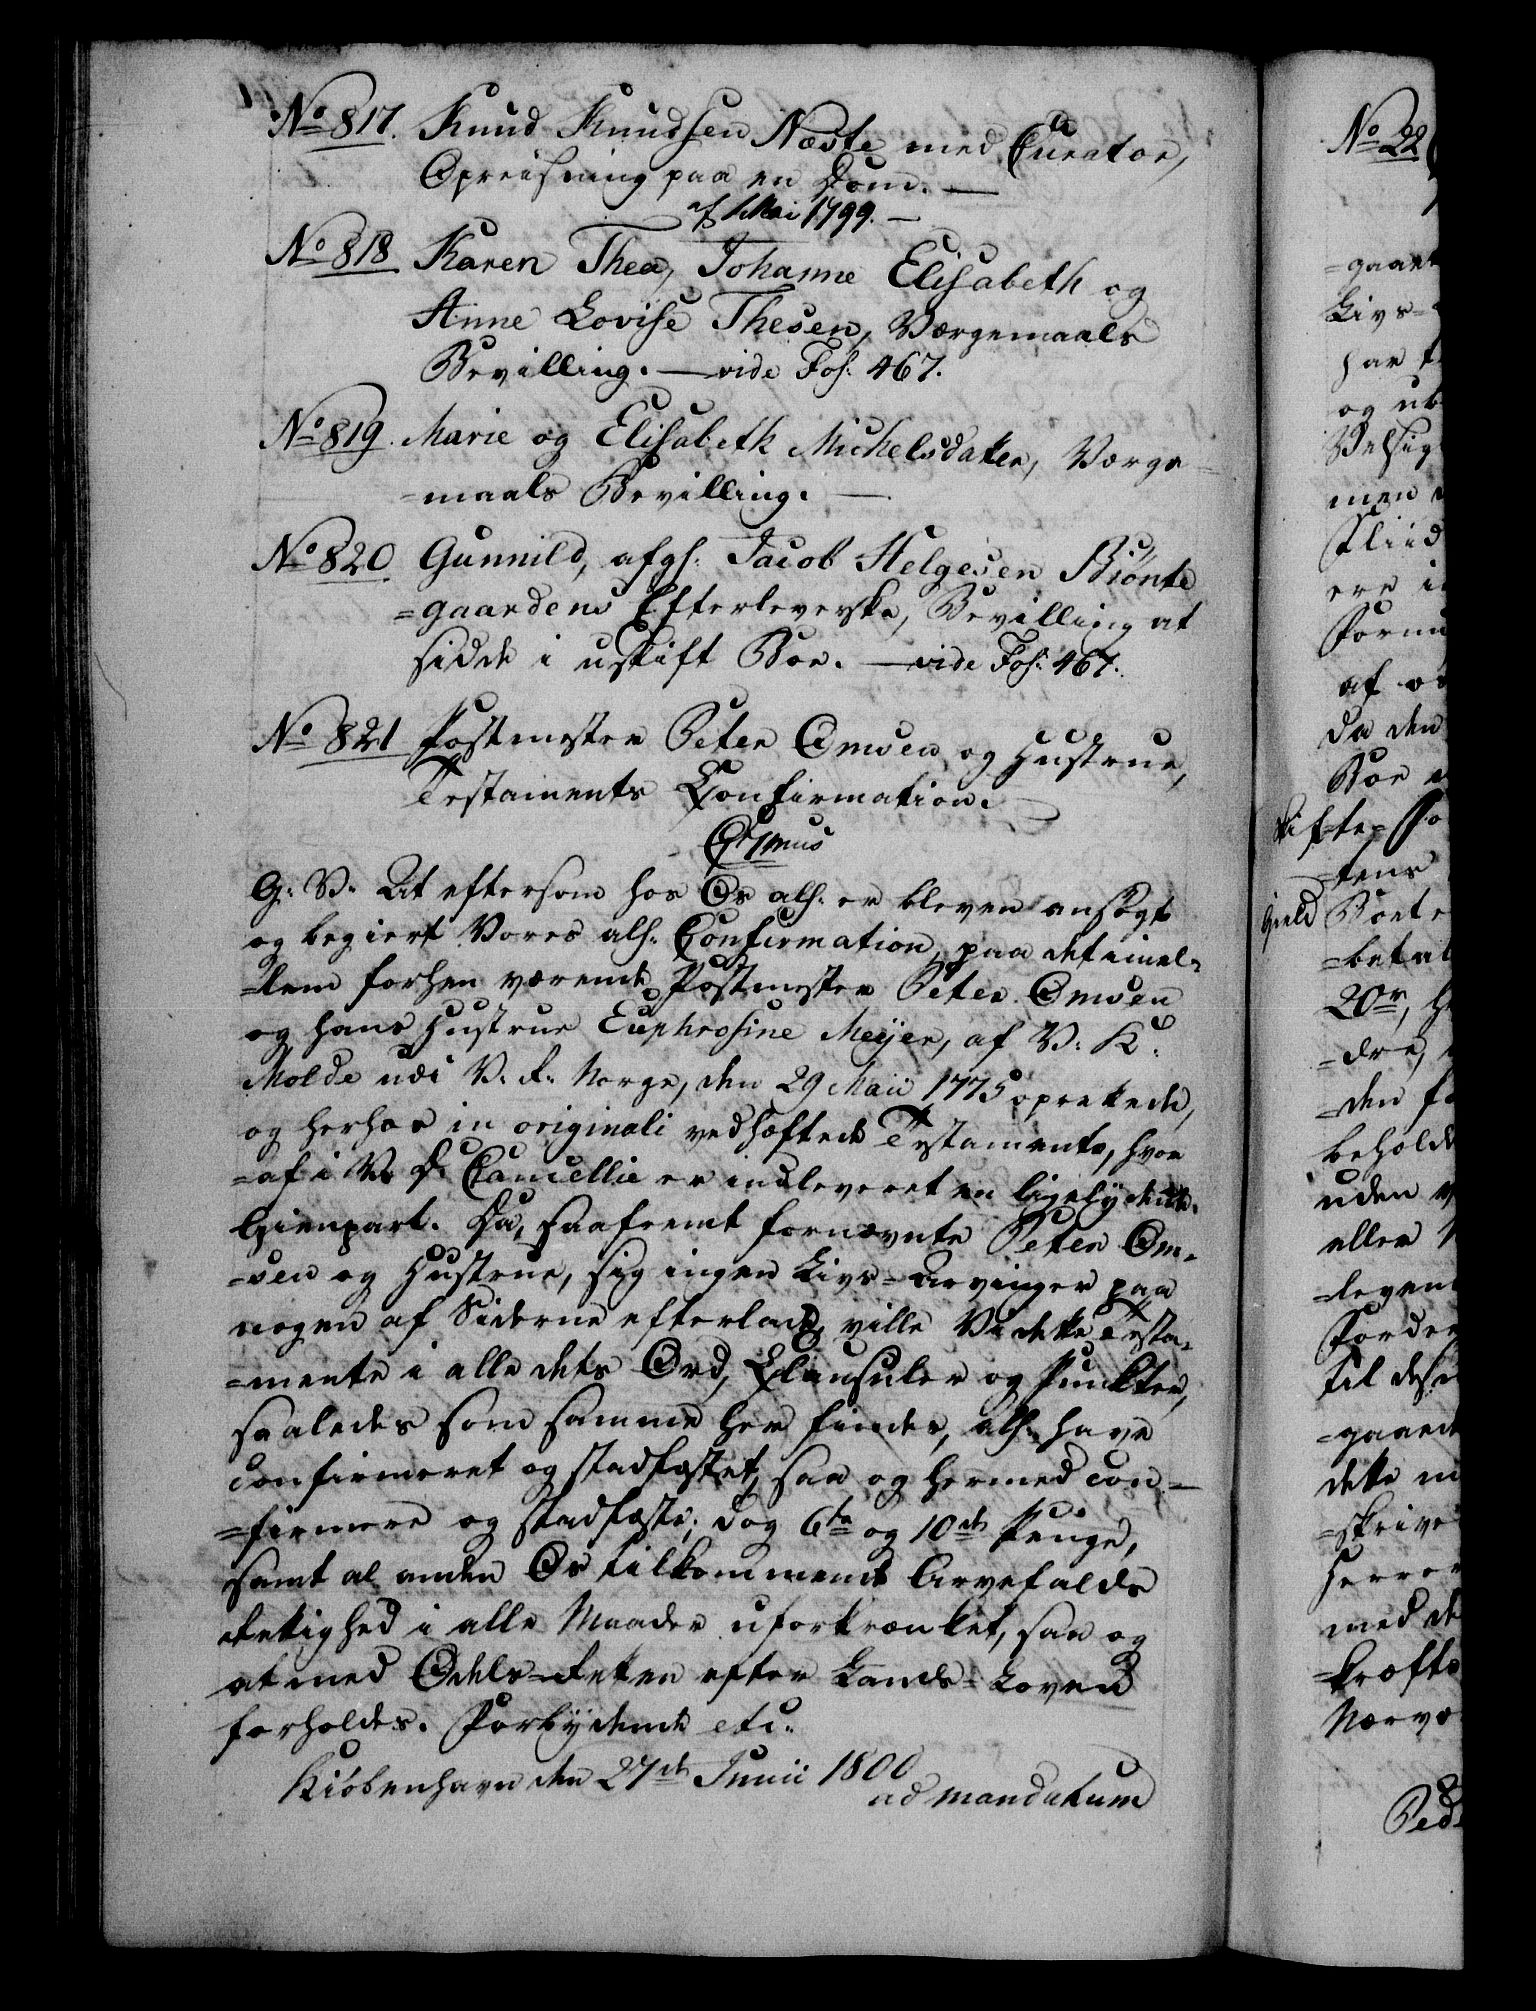 No 817. Knud Knudsen Næste med Curator,
Opreisning paa en Dom. —
af Mai 1799. —
No 818 Karen Thea, Johanne Elisabeth og
Anne Lovise Thesen, Værgemaals
Bevilling. — vide Fol: 467.
No 819. Marie og Elisabeth Michelsdatter, Værge-
=maals Bevilling. —
No 820 Gunnild, afg: Jacob Helgesen Brønte
=gaardens Efterleverske, Bevilling at
sidde i uskift Boe. — vide Fol: 467.
No 821 Postmester Peter Omsen og Hustrue,
Testaments Confirmation.
G: V: At eftersom hos Os all: er bleven ansøgt
og begiert Vores all: Confirmation, paa det imel-
=lem forhen værende Postmester Peter Omsen
og hans Hustrue Euphrosine Meijer, af V: K:
Molde udi V: R: Norge, den 29 Maii 1775 oprettede,
og herhos in originali vedhæftede Testamente, hvor
=af i V: D: Cancellie er indleveret en ligelydende
Gienpart. Da, saafremt fornævnte Peter Om-
=sen og Hustrue, sig ingen Livs-Arvinger paa
nogen af Siderne efterlade, ville Vi dette Testa-
=mente i alle dets Ord, Clausuler og Puncter,
saaledes som samme her findes, all: have
confirmeret og stadfæstet, saa og hermed con-
=firmere og stadfæste; dog 6te og 10de Penge,
samt al anden Os tilkommende Arvefalds
Rettighed i alle Maader uforkrænket, saa og
at med Odels-Retten efter Lands-Loven
forholdes. Forbydende etc:
Kiøbenhavn den 27de Junii 1800
ad mandatum
No 22